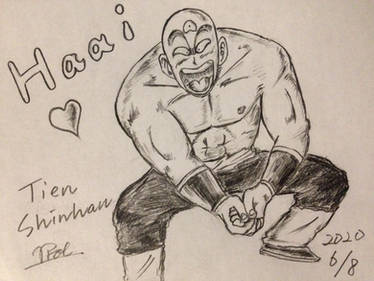 Haai
Tien
Shinhan
2020
6/8